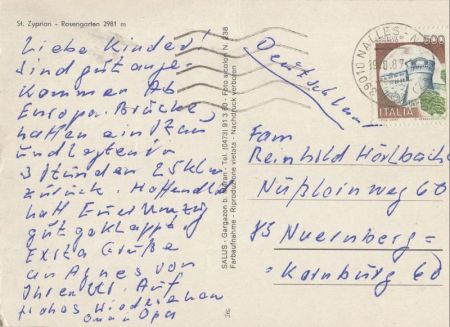 St. Zyprian - Rosengarten 2981 m
Liebe Kinder!
Sind gut ange-
kommen Ab
Europa-Brücke
hatten ein Stau
und legten in
3 Stunden 25 Klm
zurück. Hoffendl
hatt Euer Umzug
gut geklappt
Extra Grüße
an Agnes von
Ihren Ul. Auf
frohes Wiedersehen
Oma u Opa
SALUS - Gargazon b. Meran - Tel. (0473) 91 3 80 - Foto acolori N. 238
Farbaufnahme - Riproduzione vietata - Nachdruck verboten
Deutschland
39010 NALLES
500
ITALIA
Fam
Reinhild Hörlbacher
Nußloinweg 60
85 Nuernberg=
Kornburg 60